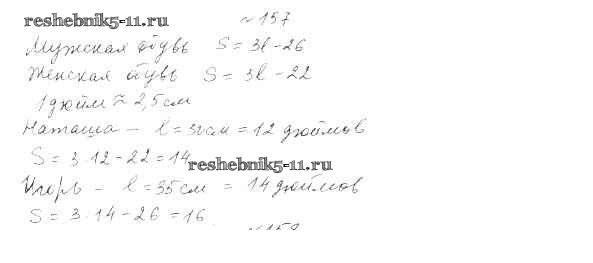 reshebnik5-11.ru
№157
Мужская обувь S = 3l - 26
Женская обувь S = 3l - 22
1 дюйм ≈ 2,5 см
Наташа - l = 30 см = 12 дюймов
S = 3·12 - 22 = 14
reshebnik5-11.ru
Игорь - l = 35 см = 14 дюймов
S = 3·14 - 26 = 16